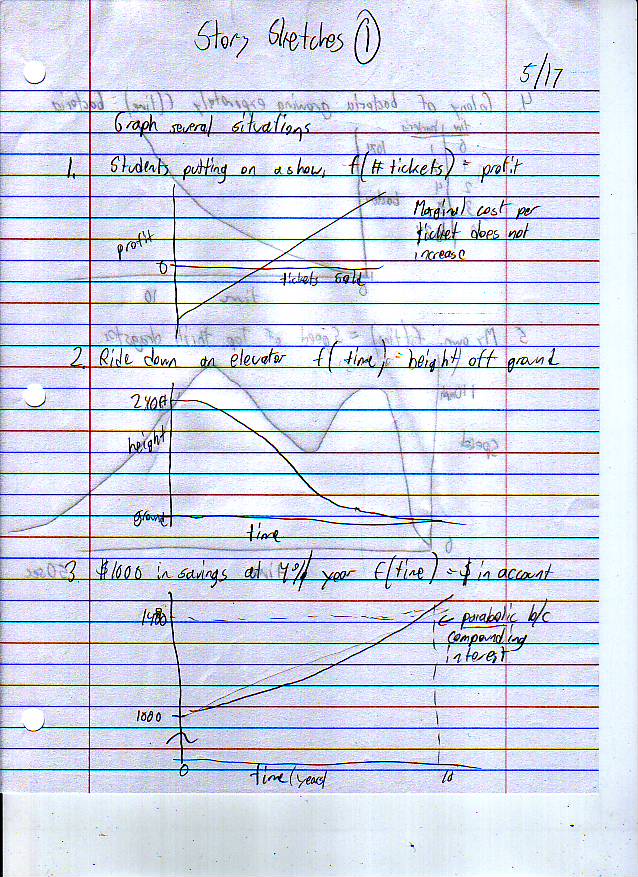 Story Sketches 1
5/17
Graph several situations
1. Students putting on a show, f(# tickets) = profit
profit
0
tickets sold
Marginal cost per
ticket does not
increase
2. Ride down an elevator f(time) = height off ground
240ft
height
ground
time
3 $1000 in savings at 4%/year f(time) = $ in account
1480
1000
0
time (years)
10
← parabolic b/c
compounding
interest